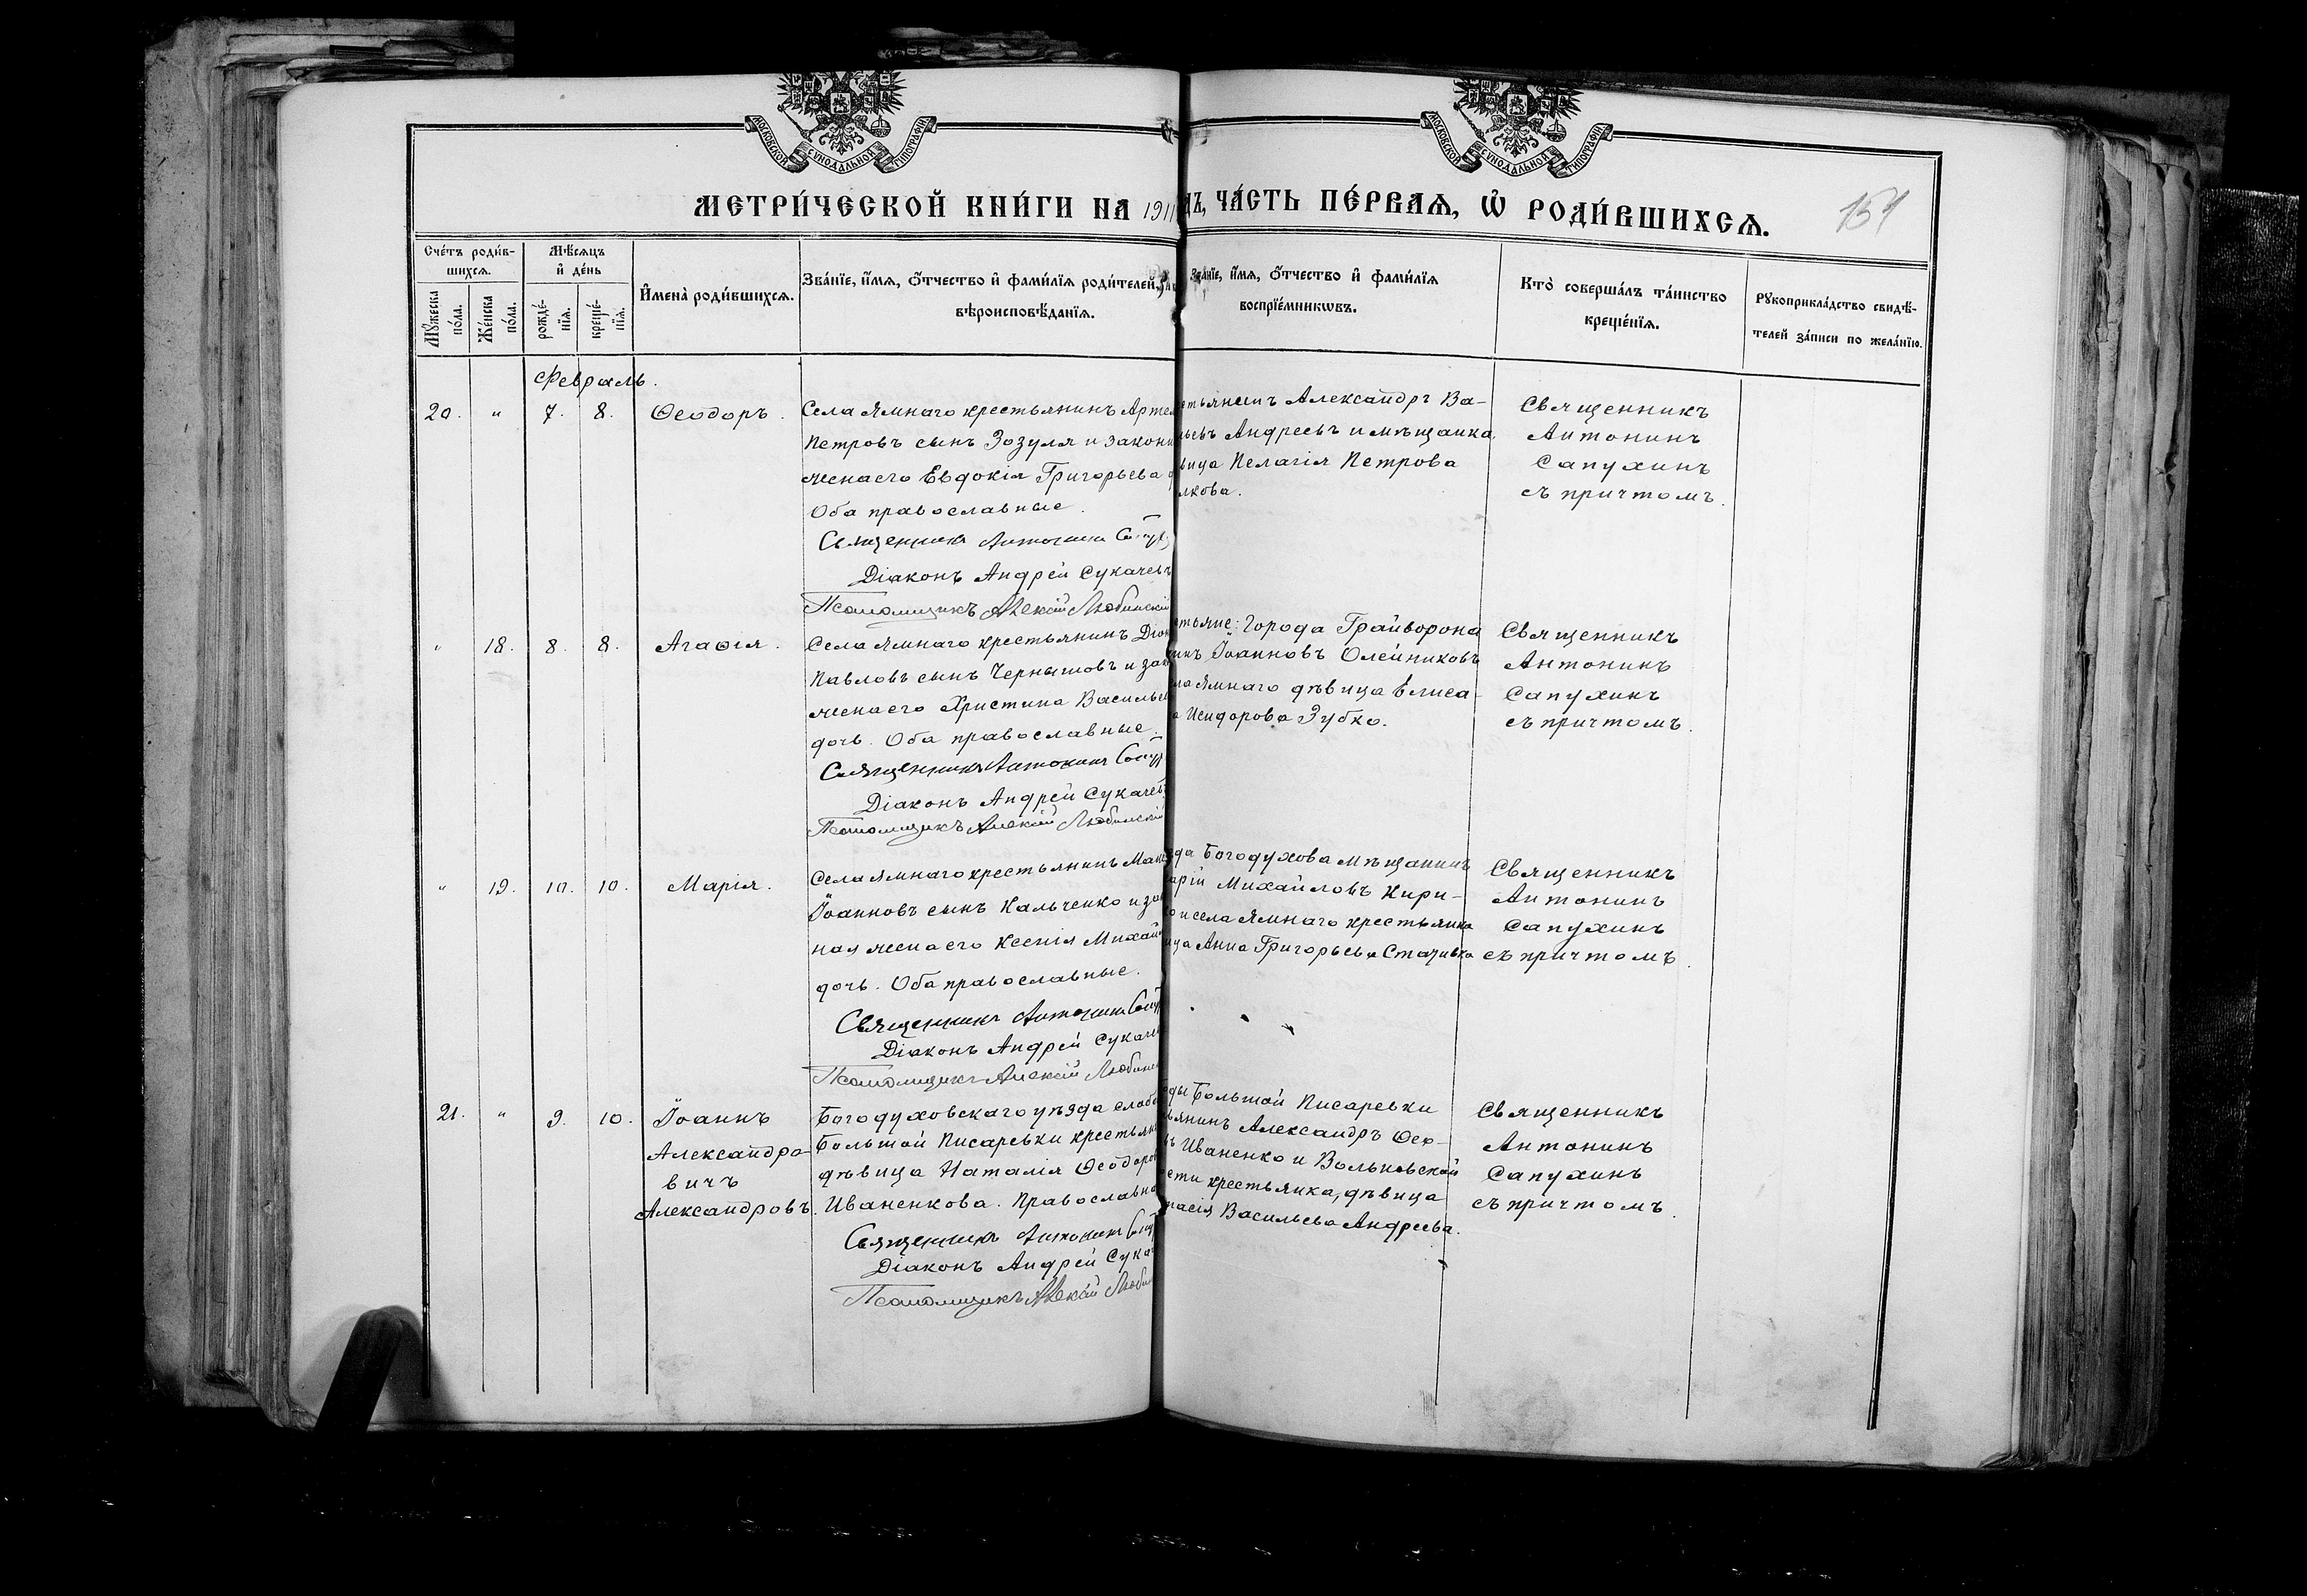 МОСКОВСКОЙ СѴНОДАЛЬНОЙ ТИПОГРАФІИ
МОСКОВСКОЙ СѴНОДАЛЬНОЙ ТИПОГРАФІИ
МЕТРИ́ЧЕСКОЙ КНИ́ГИ НА 1911
ДЪ, ЧА́СТЬ ПЕ́РВАѦ, Ѡ҆ РОДИ́ВШИХСѦ.
151
Сче́тъ роди́в-
шихсѧ.
Мꙋ́жеска
по́ла.
Же́нска
по́ла.
Мѣ́сѧцъ
и҆ де́нь
рожде́-
нїѧ.
креще́-
нїѧ.
И҆мена̀ роди́вшихсѧ.
Зва́нїе, и҆́мѧ, ѻ҆́тчество и҆ фами́лїѧ роди́телей,
вѣроисповѣ́данїѧ.
Зва́нїе, и҆́мѧ, ѻ҆́тчество и҆ фами́лїѧ
воспрїе́мникѡвъ.
Кто̀ соверша́лъ та́инство
креще́нїѧ.
Рꙋкоприкла́дство свидѣ́-
телей за́писи по жела́нїю.
Февраль.
20. " 7. 8. Ѳеодоръ.
Села Ямнаго крестьянинъ Арте
Петровъ сынъ Зозуля и законн
жена его Евдокія Григорьева
Оба православные.
Священникъ Антонинъ Сапух
Діаконъ Андрей Сукачевъ
Псаломщикъ Алексій Любинскій
стьянинъ Александръ Ва-
льевъ Андреевъ и мѣщанка,
вица Пелагія Петрова
лкова.
Священникъ
Антонинъ
Сапухинъ
съ причтомъ.
" 18. 8. 8. Агаѳія.
Села Ямнаго крестьянинъ Діон
Павловъ сынъ Чернышовъ и зак
жена его Христина Васильев
дочь. Оба православные.
Священникъ Антонинъ Сапух
Діаконъ Андрей Сукачевъ
Псаломщикъ Алексій Любинскій
стьяне: Города Грайворона
инъ Іоанновъ Олейниковъ
ла Ямнаго дѣвица Елиса-
а Исидорова Зубко.
Священникъ
Антонинъ
Сапухинъ
съ причтомъ.
" 19. 10. 10. Марія.
Села Ямнаго крестьянинъ Мак
Іоанновъ сынъ Кальченко и зак
ная жена его Ксенія Михай
дочь. Оба православные.
Священникъ Антонинъ Сапух
Діаконъ Андрей Сукаче
Псаломщикъ Алексій Любинс
да Богодухова мѣщанинъ
арій Михайловъ Кири-
о и села Ямнаго крестьянка
ица Анна Григорьева Стативка
Священникъ
Антонинъ
Сапухинъ
съ причтомъ.
21. " 9. 10. Іоаннъ
Александро-
вичъ
Александровъ.
Богодуховскаго уѣзда слобо
Большой Писаревки крестьян
дѣвица Наталія Ѳеодоров
Иваненкова. Православна
Священникъ Антонинъ Сапу
Діаконъ Андрей Сука
Псаломщикъ Алексій Любин
ды Большой Писаревки
ьянинъ Александръ Ѳео-
въ Иваненко и Вольновской
сти крестьянка, дѣвица
тасія Васильева Андреева.
Священникъ
Антонинъ
Сапухинъ
съ причтомъ.